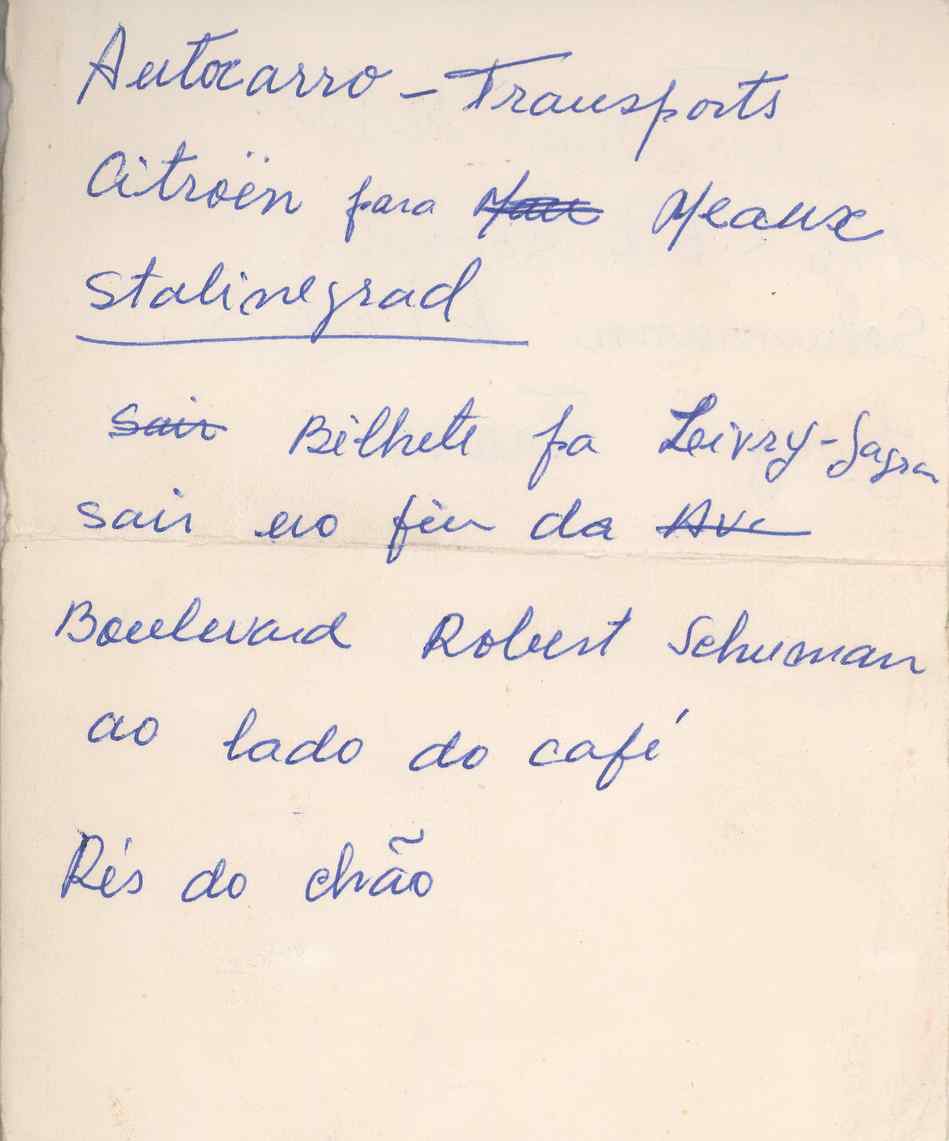 Autocarro – Transports
Citroën para Meaux
Stalinegrad
Sair Bilhete pa Leivry-Gagran
sair no fim da Av
Boulevard Robert Schuman
ao lado do café
Rés do chão